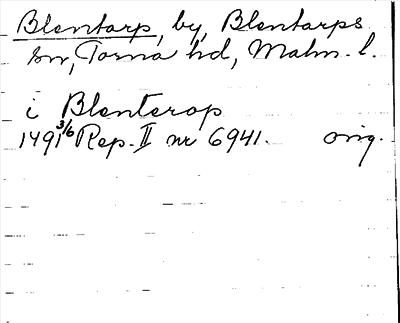 Blentarp, by, Blentarps
sn, Torna hd, Malm. l.
i Blenterop
1491 3/6 Rep. II nr 6941. orig.